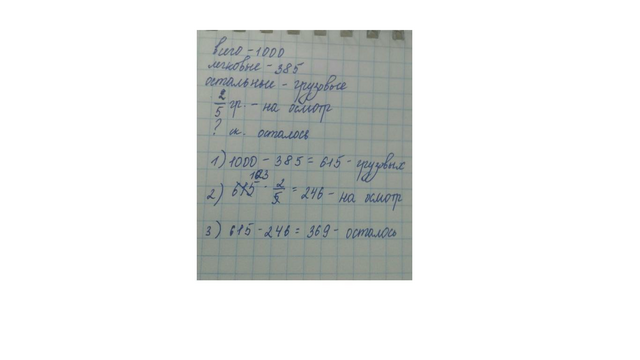 всего - 1000
легковые - 385
остальные - грузовые
2/5 гр. - на осмотр
? м. осталось
1) 1000 - 385 = 615 - грузовых
123
2) 615 · 2/5 = 246 - на осмотр
3) 615 - 246 = 369 - осталось